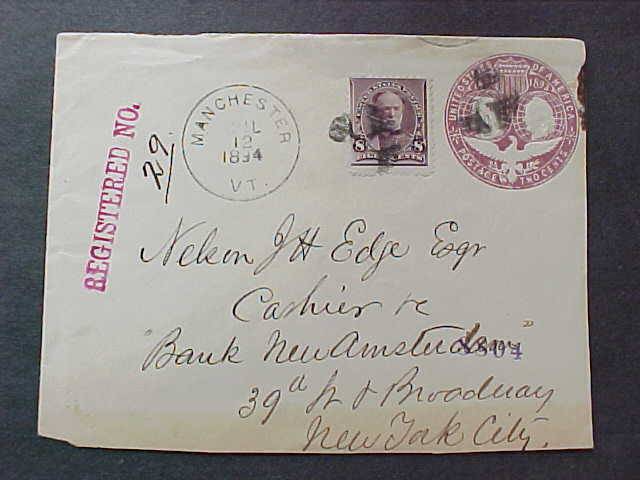 REGISTERED NO.
29.
MANCHESTER
JUL
12
1894
VT.
8 8
EIGHT CENTS
UNITED STATES DE AMERICA
1892
POSTAGE TWO CENTS
Nelson J H Edge Esqr
Cashier &c
"Bank New Amsterdam"
39th St & Broadway
New York City.